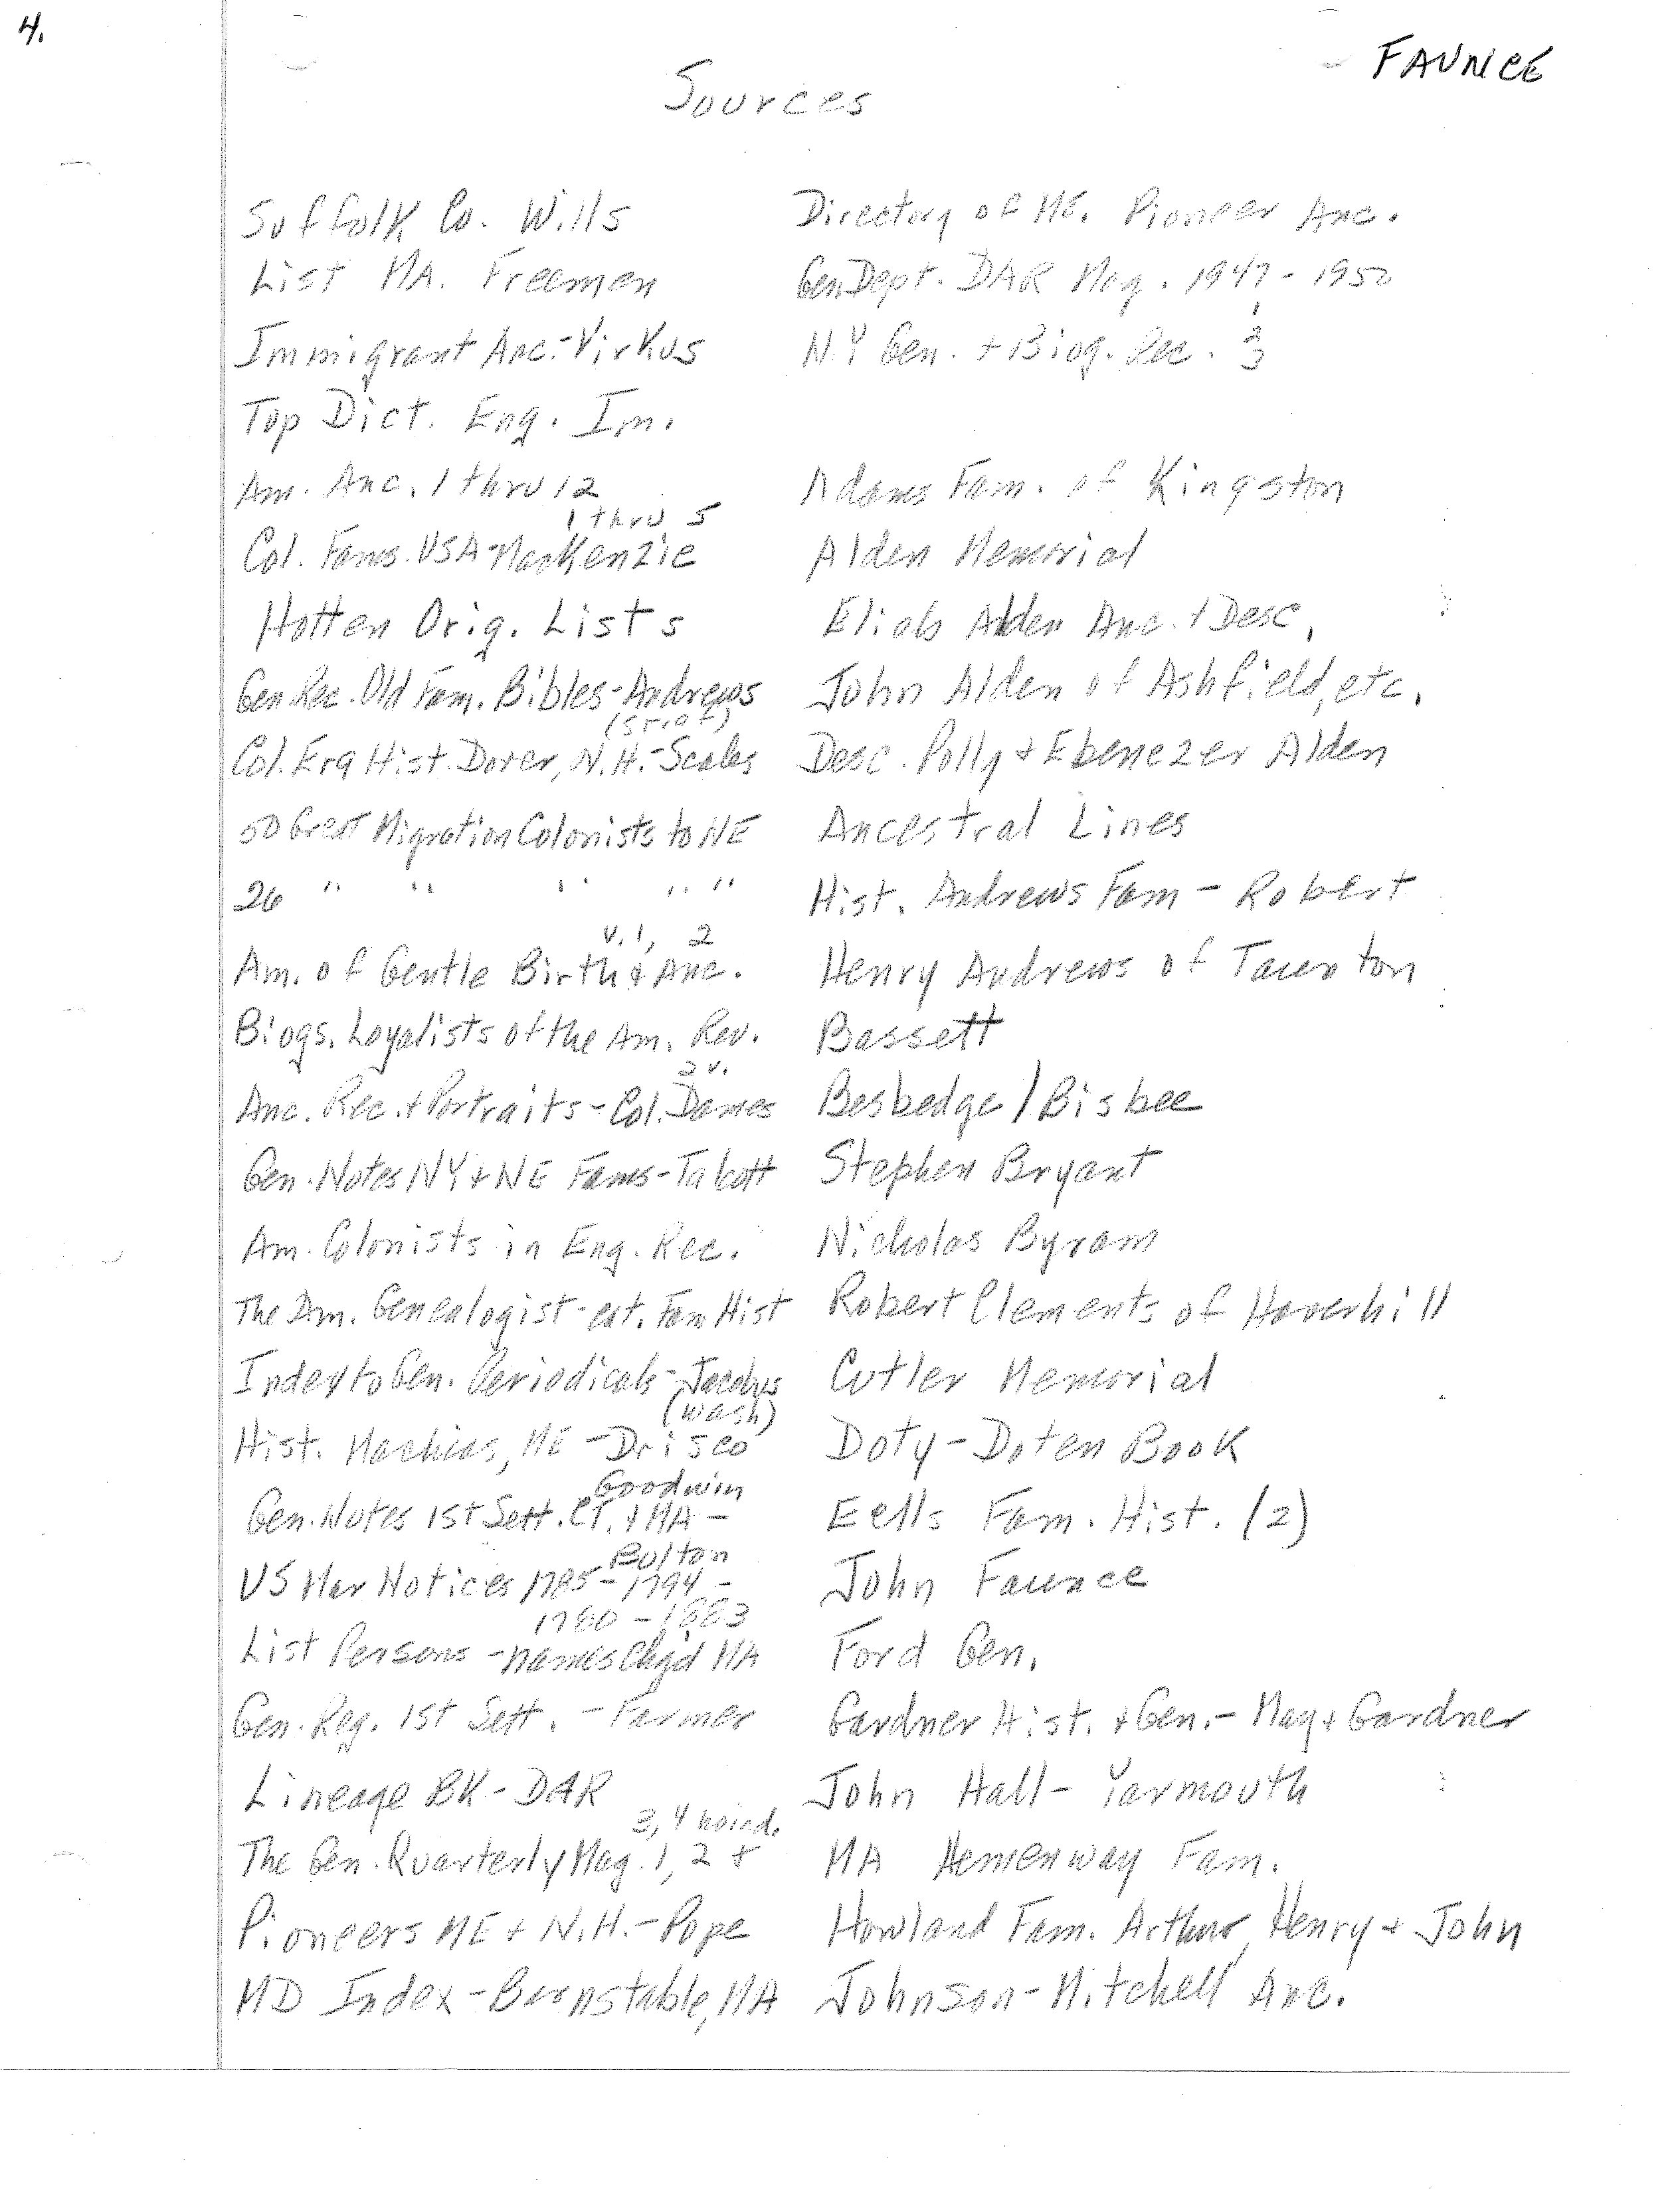 4.
FAUNCE
Sources
Suffolk Co. Wills
List MA. Freemen
Immigrant Anc.-Virkus
Top Dict. Eng. Im.
Am. Anc. 1 thru 12
1 thru 5
Col. Fams. USA-MacKenzie
Hotten Orig. Lists
Gen Rec. Old Fam. Bibles-Andrews
Col. Era Hist. Dover, N.H.-Scales
50 Great Migration Colonists to NE
26 " " " " "
v. 1, 2
Am. of Gentle Birth & Anc.
Biogs. Loyalists of the Am. Rev.
2 v.
Anc. Rec. + Portraits-Col. Dames
Gen. Notes NY + NE Fams-Talcott
Am. Colonists in Eng. Rec.
The Am. Genealogist-ext. Fam Hist
Index to Gen. Periodicals-Jacobus
(Wash)
Hist. Machias, ME-Drisco
Goodwin
Gen. Notes 1st Sett. CT. + MA-
Bolton
US Mar Notices 1785-1794-
1780-1883
List Persons-names Chg'd MA
Gen. Reg. 1st Sett.-Farmer
Lineage BK-DAR
3, 4 noind.
The Gen. Quarterly Mag. 1, 2 +
Pioneers ME + N.H.-Pope
MD Index-Barnstable, MA
Directory of ME. Pioneer Anc.
Gen Dept. DAR Mag. 1947-1950
1
N.Y Gen. + Biog. Rec. 2
3
Adams Fam. of Kingston
Alden Memorial
Eliab Alden Anc. + Desc.
John Alden of Ashfield, etc.
Desc. Polly + Ebenezer Alden
Ancestral Lines
Hist. Andrews Fam-Robert
Henry Andrews of Taunton
Bassett
Besbedge/Bisbee
Stephen Bryant
Nicholas Byram
Robert Clements of Haverhill
Cutler Memorial
Doty-Doten Book
Eells Fam. Hist. (2)
John Faunce
Ford Gen.
Gardner Hist. + Gen.-May + Gardner
John Hall-Yarmouth
MA Hemenway Fam.
Howland Fam. Arthur, Henry + John
Johnson-Mitchell Anc.